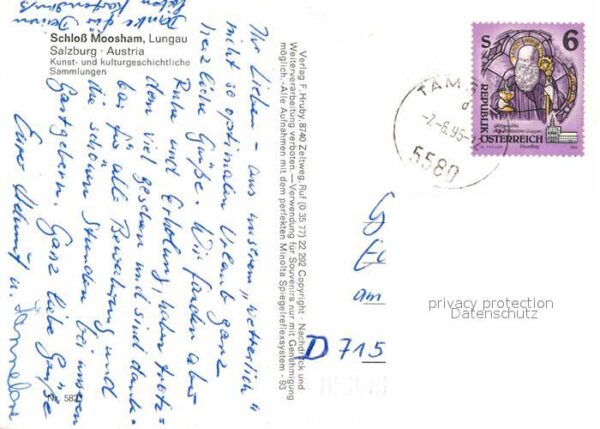 Schloß Moosham, Lungau
Salzburg · Austria
Kunst- und kulturgeschichtliche
Sammlungen
Ihr Lieben – aus unserem „wetterlich"
nicht so optimalen Urlaub ganz
herzliche Grüße. Wir finden aber
Ruhe und Erholung, haben trotz-
dem viel gesehen und sind dank-
bar für alle Bewahrung und
die schönen Stunden bei unseren
Gastgebern. Ganz liebe Grüße
Eure Helmut u. Hannelore
Danke für Deinen
Nr. 582
Verlag F. Hruby, 8740 Zeltweg, Ruf (0 35 77) 22 292 Copyright · Nachdruck und
Weiterverarbeitung verboten. – Verwendung für Souvenirs nur mit Genehmigung
möglich. · Alle Aufnahmen mit dem perfekten Minolta Spiegelreflexsystem · 93
S 6
REPUBLIK
ÖSTERREICH
TAMS
-7.-6.95-
5580
am
D 715
privacy protection
Datenschutz